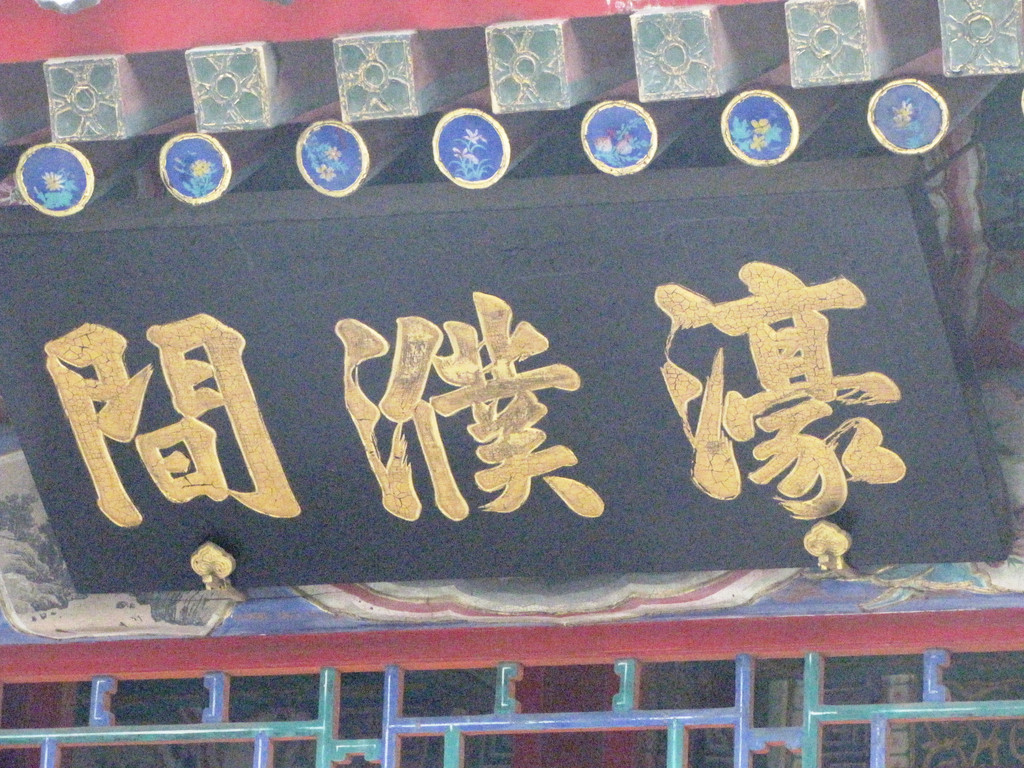 濠濮間